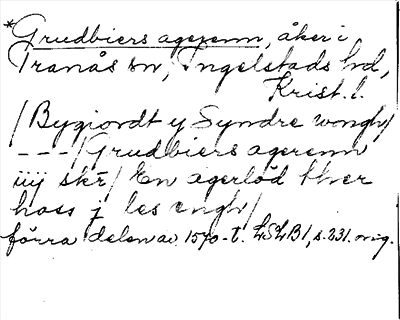 *Grudbiers agerenn, åker i
Tranås sn, Ingelstads hd,
Krist. l.
/Bygiordt y Syndre wongh/
---/Grudbiers agerenn
iiij skr̄/ En agerlød ther
hoss j les engh/
förra delen av 1570-t. LSLB1, s. 231. orig.